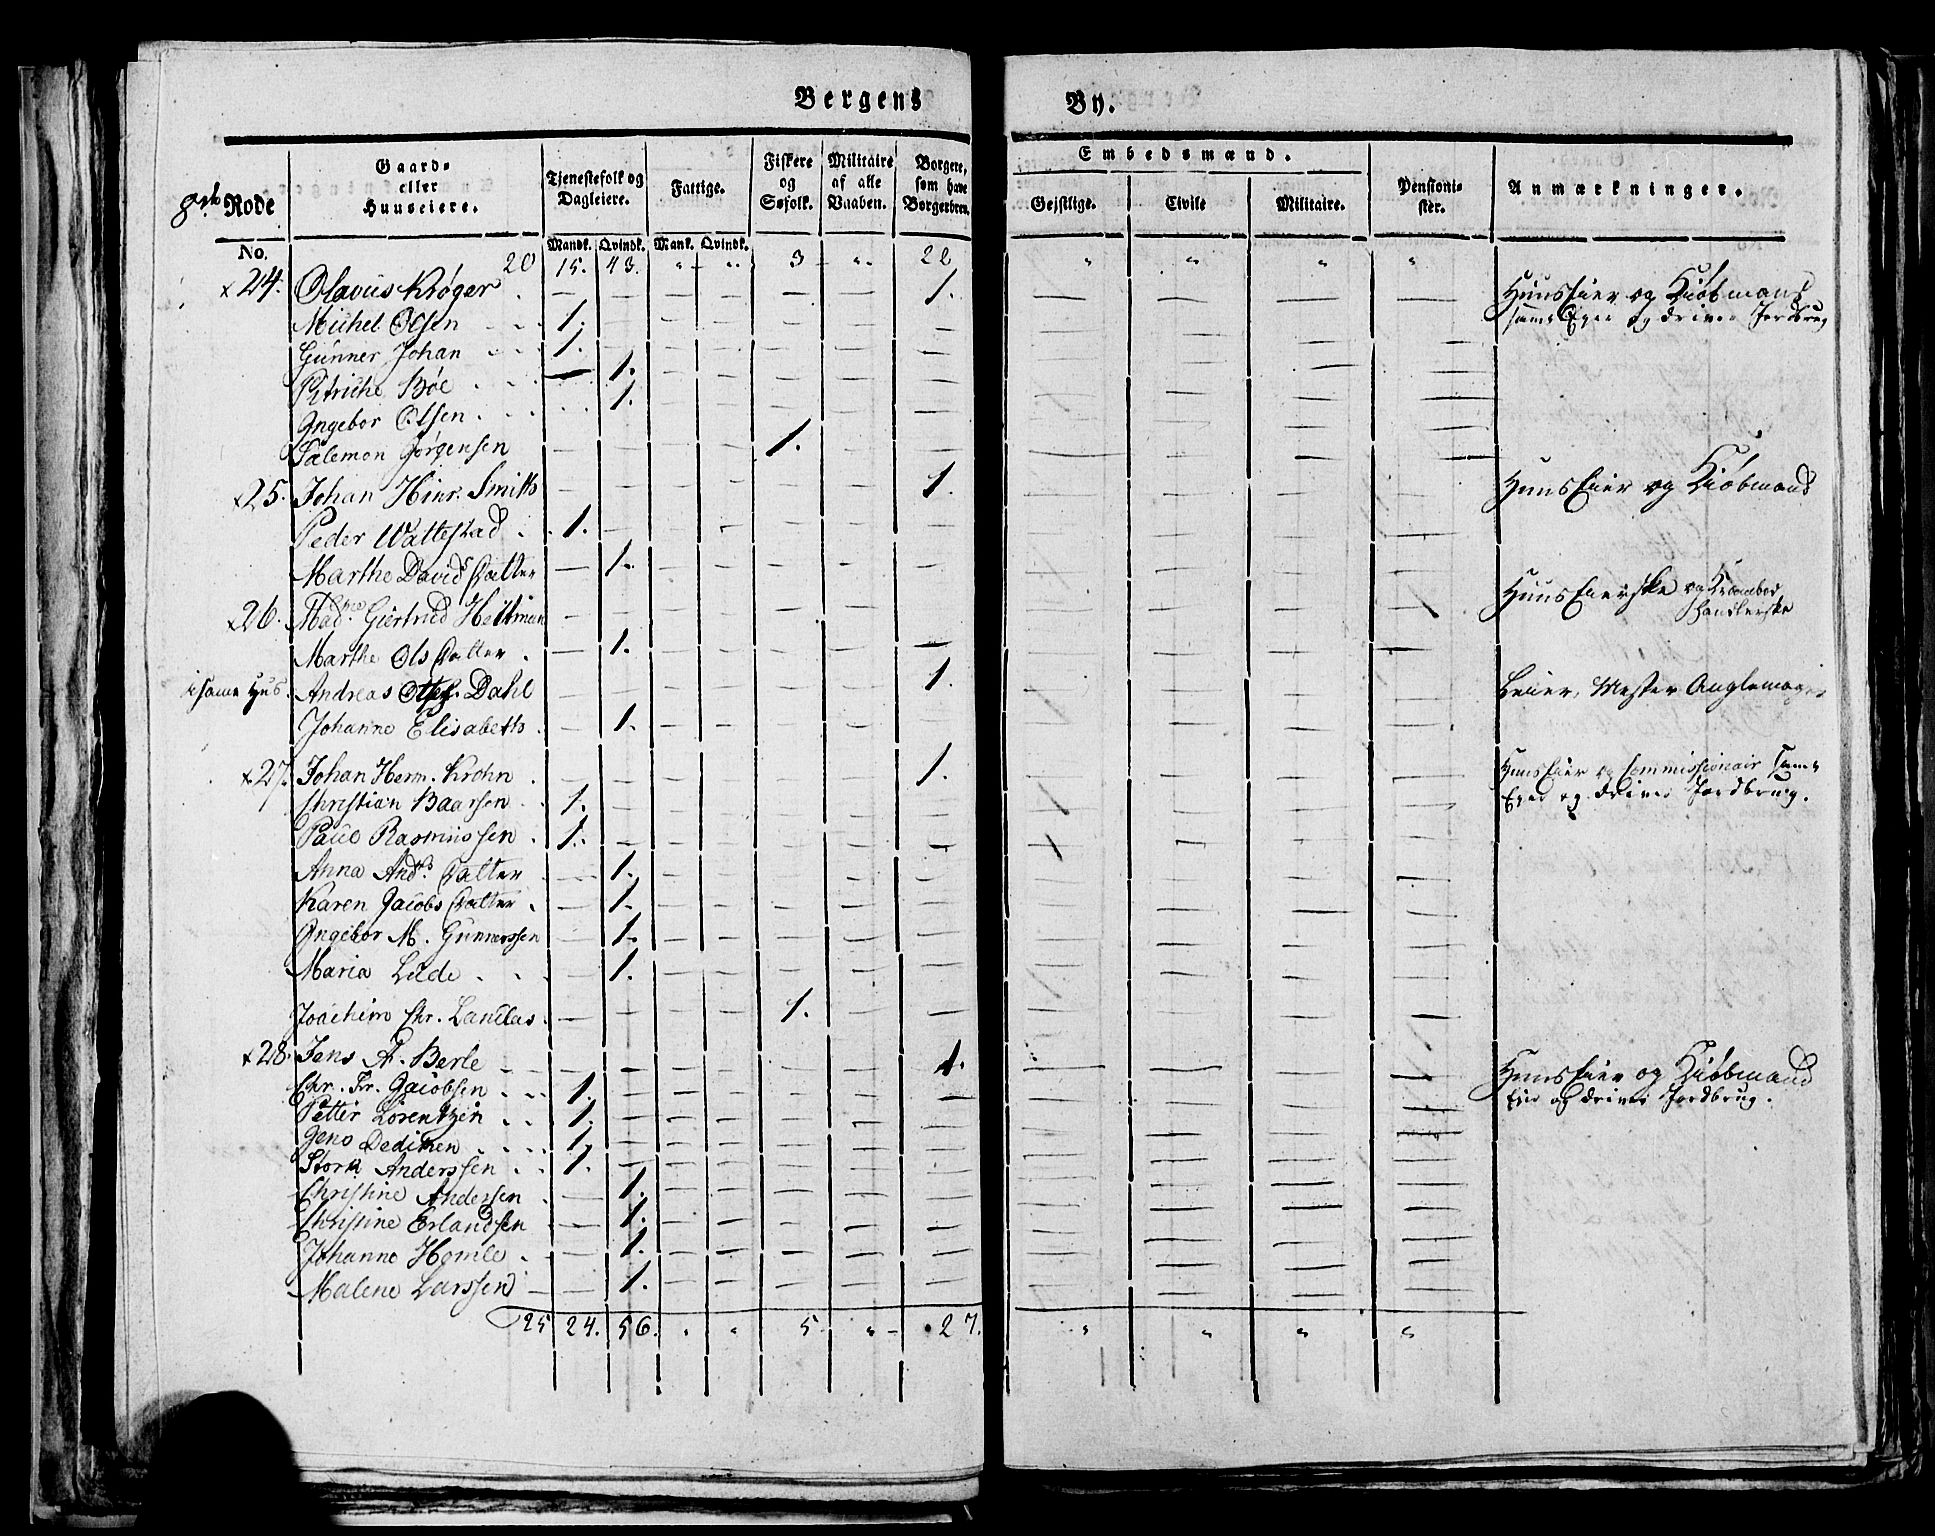 Bergens By.
8de Rode
No.
Gaard- eller Huuseiere.
Tjenestefolk og Dagleiere.
Mandk. Qvindk.
Fattige.
Mank. Qvindk.
Fiskere og Søfolk.
Militaire af alle Vaaben.
Borgere, som have Borgerbrev.
Embedsmænd.
Gejstlige.
Civile
Militaire.
Pensionister.
Anmærkninger.
20 15. 43. " " 3 " 22 " " " "
24. Olavus Krøger - - - - - - 1. - - - - Huus Eier og Kiøbmand
samt Eyer og driver Jordbrug
Michel Olsen 1. - - - - - - - - - -
Gunner Johan 1. - - - - - - - - - -
Petriche Bøe - 1. - - - - - - - - -
Ingebor Olsen - 1. - - - - - - - - -
Salemon Jørgensen - - - - 1. - - - - - -
25. Johan Hinr. Smith - - - - - - 1. - - - - Huus Eier og Kiøbmand
Peder Wattestad 1. - - - - - - - - - -
Marthe Davids Datter - 1. - - - - - - - - -
26. Mad. Giertrud Heltman - - - - - - - - - - - Huus Eierske og Krambod
Handlerske
Marthe Ols Datter - 1. - - - - - - - - -
i same Hus. Andreas Dahl - - - - - - 1. - - - - Leier, Mester
Johanne Elisabeth - 1. - - - - - - - - -
27. Johan Herm. Krohn - - - - - - 1. - - - - Huus Eier og Commissionair samt
Eyer og driver Jordbrug.
Christian Baarsen 1. - - - - - - - - - -
Paul Rasmussen 1. - - - - - - - - - -
Anna Ands. Datter - 1. - - - - - - - - -
Karen Jacobs Datter - 1. - - - - - - - - -
Ingebor M. Gunnerssen - 1. - - - - - - - - -
Maria Lude - 1. - - - - - - - - -
Joachim Chr. Landaas - - - - 1. - - - - - -
28. Jens A. Berle - - - - - - 1. - - - - Huus Eier og Kiøbmand
Eier og driver Jordbrug.
Chr. Fr. Jacobsen 1. - - - - - - - - - -
Petter Lorentzen 1. - - - - - - - - - -
Jens Dedichen 1. - - - - - - - - - -
Anderssen 1. - - - - - - - - - -
Christine Andersen - 1. - - - - - - - - -
Christine Erlandsen - 1. - - - - - - - - -
Johanne Homle - 1. - - - - - - - - -
Malene Larssen - 1. - - - - - - - - -
25 24. 56. " " 5 " 27. " " " "